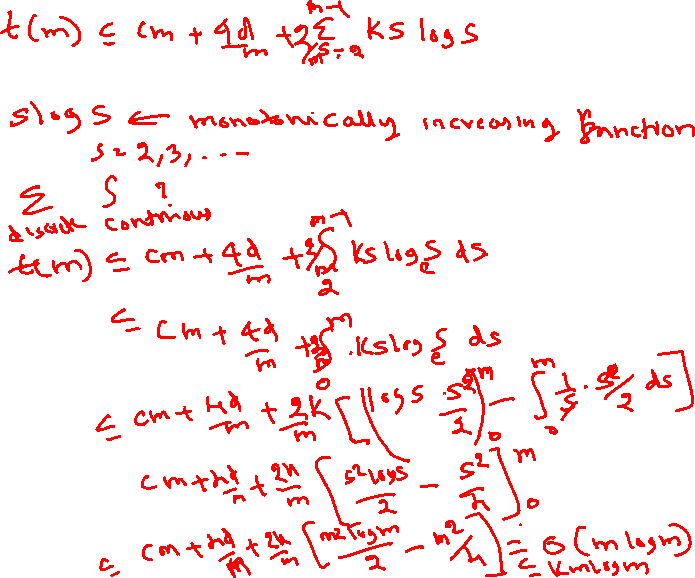 t(m) ≤ cm + 4d/m + 2/m Σ_{s=2}^{m-1} Ks log s
slog s ← monotonically increasing function
s = 2,3, ...
Σ ∫ ?
continuous
t(m) ≤ cm + 4d/m + 2/m ∫_2^{m-1} Ks log_e s ds
≤ cm + 4d/m + 2/m ∫_0^m . Ks log_e s ds
≤ cm + 4d/m + 2K/m [ (log s · s²/2)_0^m - ∫_0^m 1/s · s²/2 ds ]
cm + 4d/m + 2K/m [ s² log s/2 - s²/4 ]_0^m
≤ cm + 4d/m + 2K/m [ m² log m/2 - m²/4 ] = Θ(m log m)
≤ Km log m